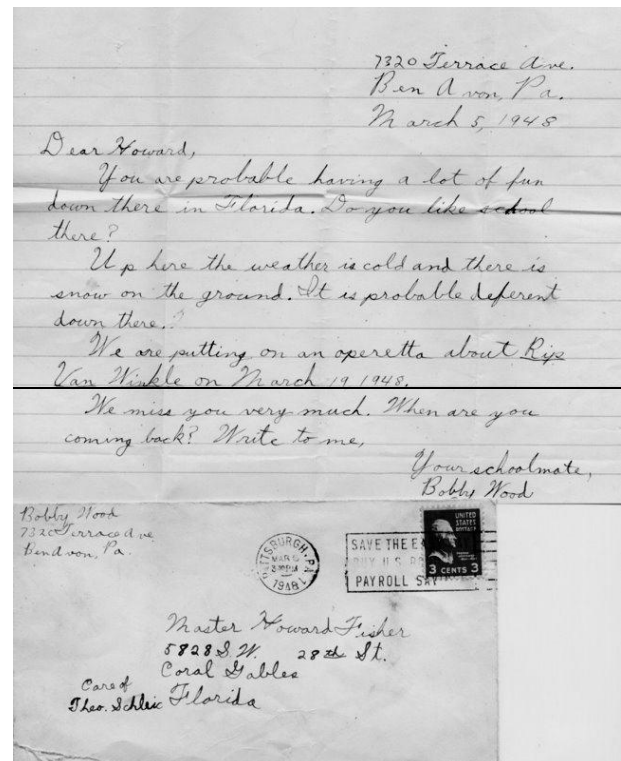 7320 Terrace Ave.
Ben Avon, Pa.
March 5, 1948
Dear Howard,
You are probable having a lot of fun
down there in Florida. Do you like school
there?
Up here the weather is cold and there is
snow on the ground. It is probable deferent
down there.?
We are putting on an operetta about Rip
Van Winkle on March 19 1948.
We miss you very much. When are you
coming back? Write to me,
Your schoolmate,
Bobby Wood
Bobby Wood
7320 Terrace Ave
Ben Avon, Pa.
PITTSBURGH, PA.
MAR
1948
SAVE THE
BUY U.S.
PAYROLL
UNITED
STATES
POSTAGE
3 CENTS 3
Master Howard Fisher
5828 S.W. 28th St.
Coral Gables
Florida
Care of
Theo. Schleic